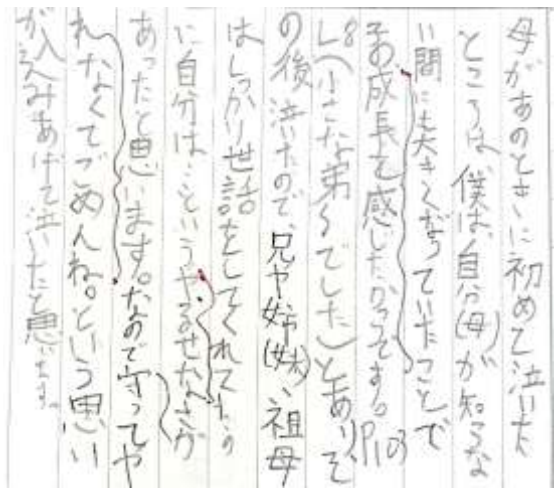 母があのときに初めて泣いた
ところは、僕は、自分(母)が知らな
い間にも大きくなっていたことで
子お成長を感じたからです。P103
L8(小さな弟
でした)とあり、そ
の後泣いたので、兄や姉(妹)、祖母
はしっかり世話をしてくれてたの
に自分は…というやるせなさが
あったと思います。なので守ってや
れなくてごめんね。という思い
が込みあげて泣いたと思います。